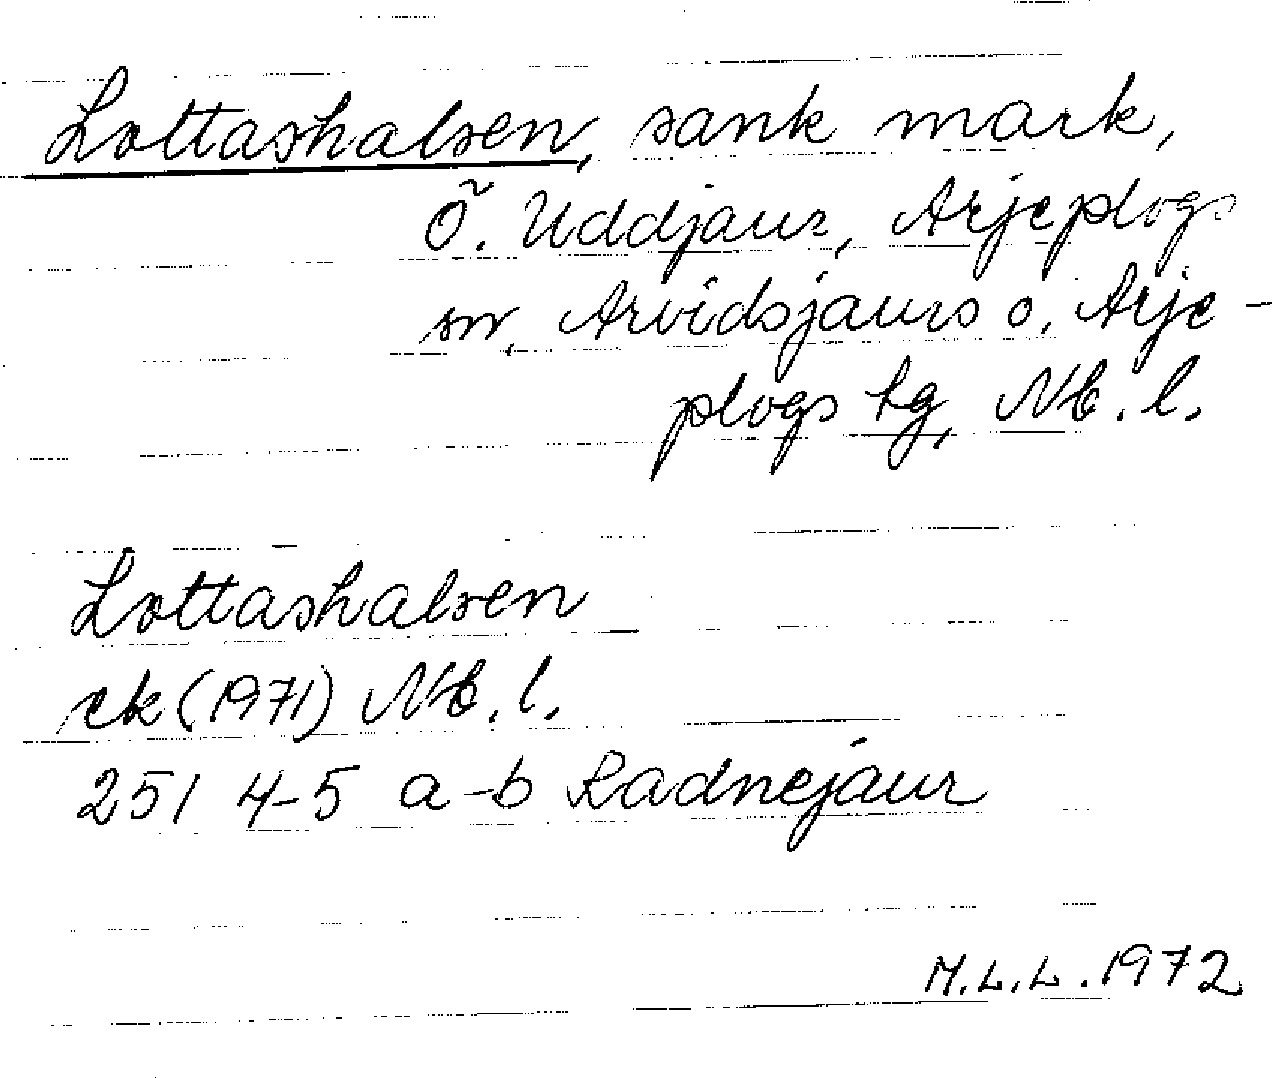 Lottashalsen, sank mark,
Ö. Uddjaur, Arjeplogs
sn, Arvidsjaurs o. Arje-
plogs tg, Nb. l.
Lottashalsen
ek (1971) Nb. l.
251 4-5 a-b Radnejaur
M.L.L. 1972